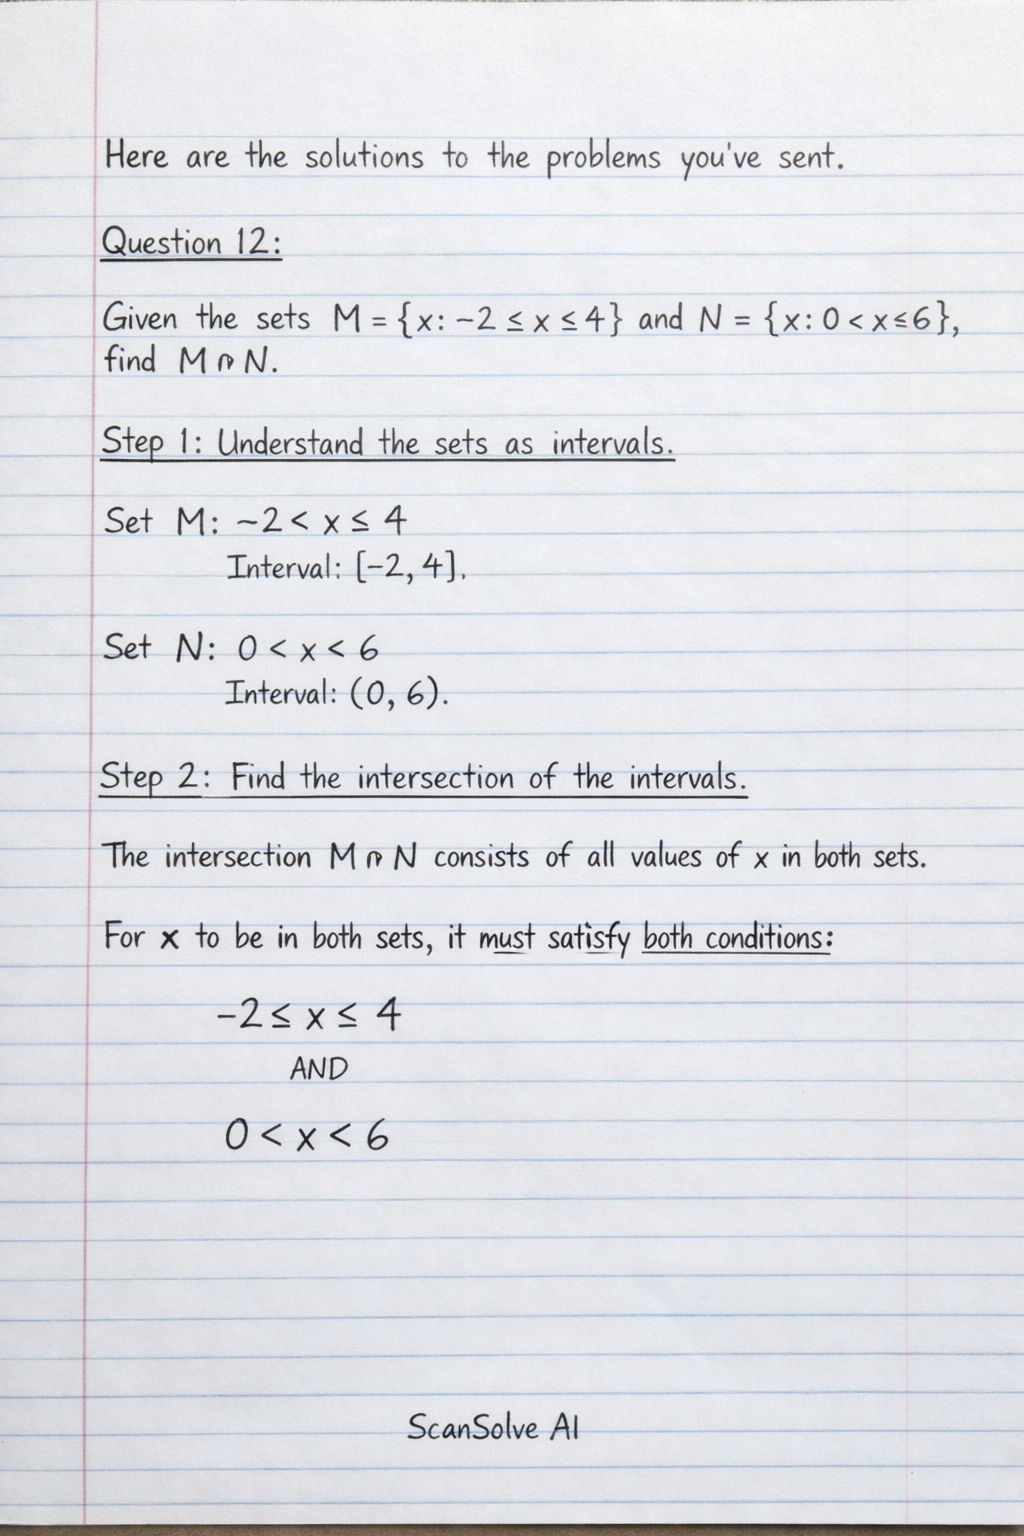 Here are the solutions to the problems you've sent.
Question 12:
Given the sets M = {x: -2 ≤ x ≤ 4} and N = {x: 0 < x ≤ 6},
find M ∩ N.
Step 1: Understand the sets as intervals.
Set M: -2 < x ≤ 4
Interval: [-2, 4].
Set N: 0 < x < 6
Interval: (0, 6).
Step 2: Find the intersection of the intervals.
The intersection M ∩ N consists of all values of x in both sets.
For x to be in both sets, it must satisfy both conditions:
-2 ≤ x ≤ 4
AND
0 < x < 6
ScanSolve AI